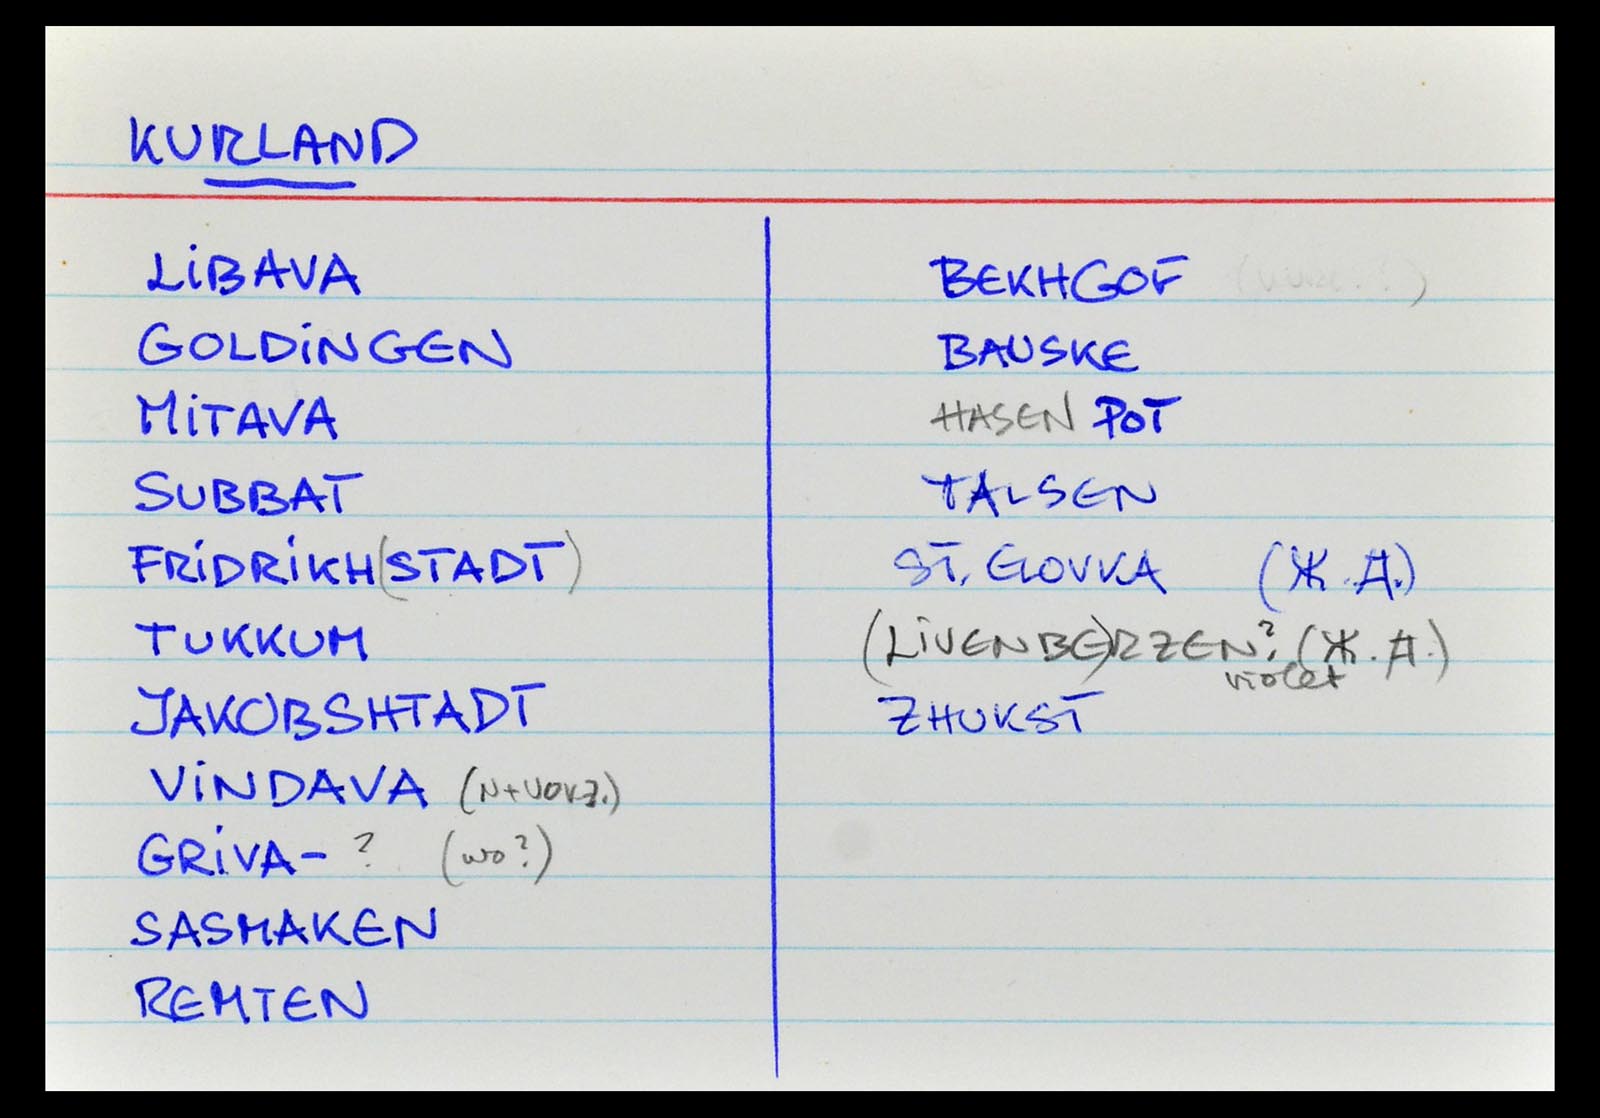 KURLAND
LiBAVA
GOLDiNGEN
MiTAVA
SUBBAT
FRiDRiKH(STADT)
TUKKUM
JAKOBSHTADT
ViNDAVA (N+VORZ.)
GRiVA- ? (wo?)
SASMAKEN
REMTEN
BEKHGOF
BAUSKE
HASEN POT
TALSEN
ST. ELOVKA (Ж.Д.)
(LiVENBE)RZEN? (Ж.Д.)
violet
ZHUKST